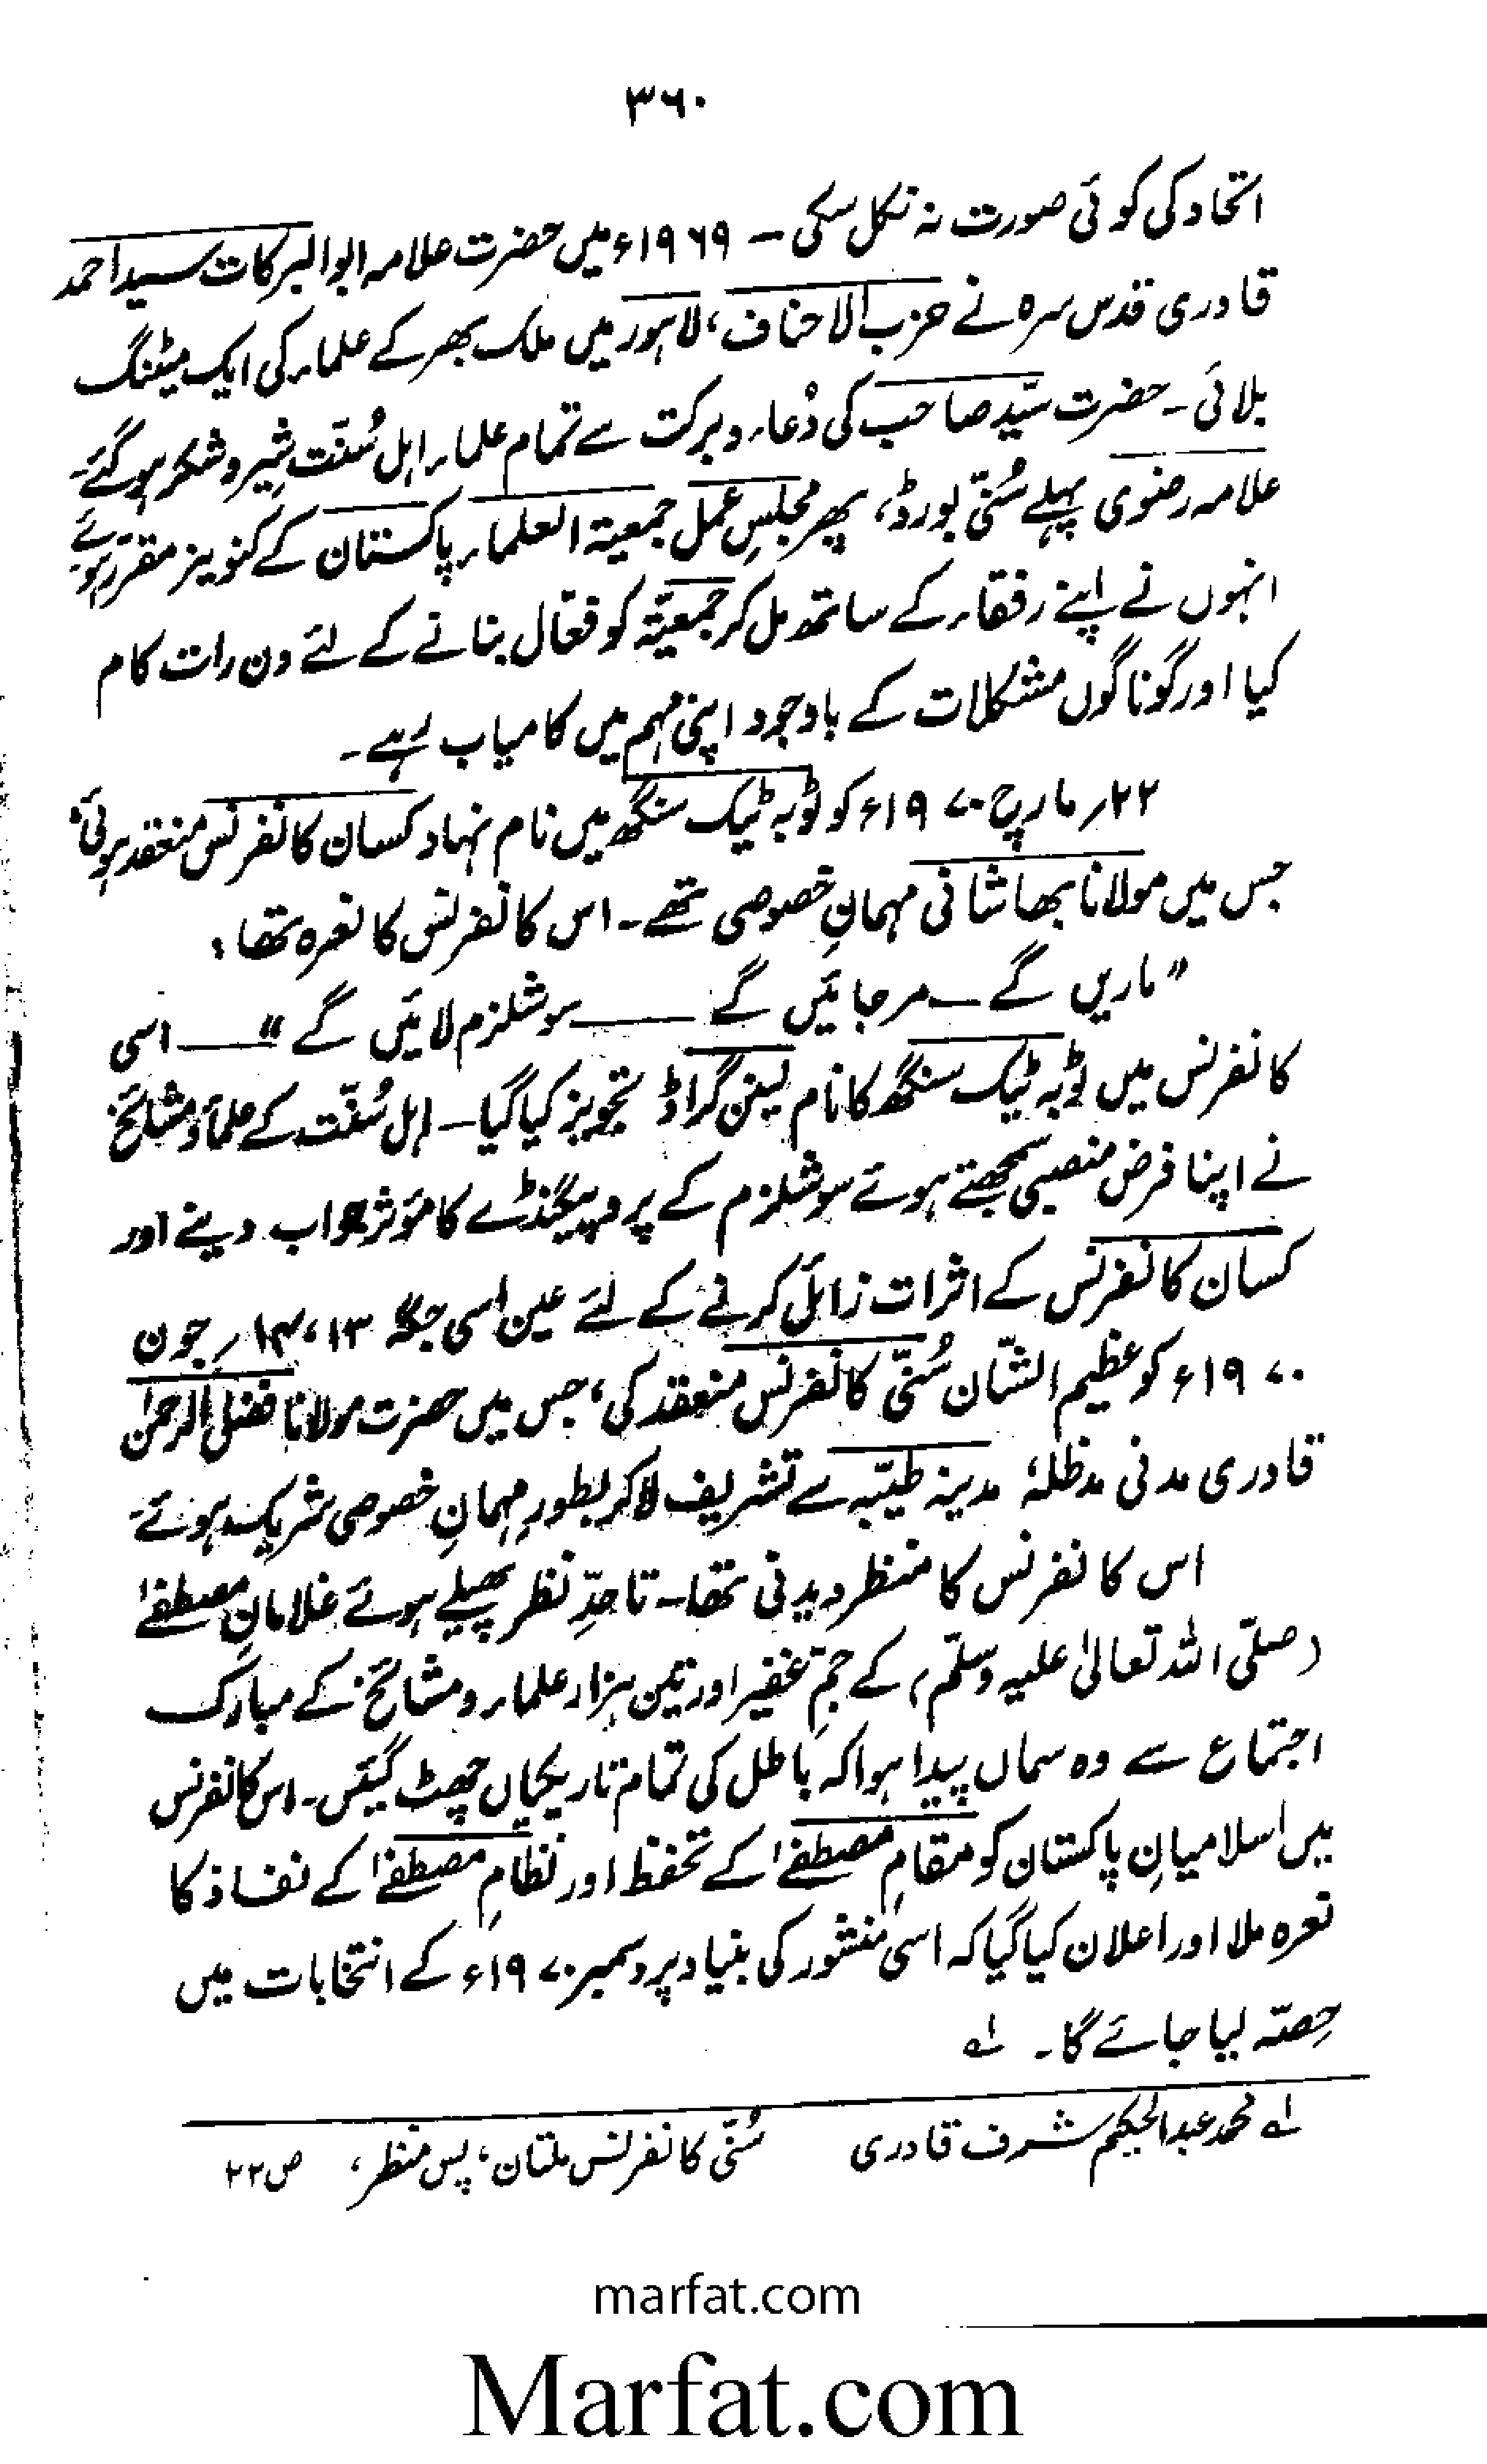 ۳۶۰
اتحاد کی کوئی صورت نہ نکل سکی ۔ ۱۹۶۹ء میں حضرت علامہ ابوالبرکات سید احمد
قادری قدس سرہ نے حزب الاحناف، لاہور میں ملک بھر کے علماء کی ایک میٹنگ
بلائی۔ حضرت سیّد صاحب کی دُعاء و برکت سے تمام علماء اہل سُنّت شِیر و شکر ہو گئے۔
علامہ رضوی پہلے سُنّی بورڈ، پھر مجلسِ عمل جمعیۃ العلماء پاکستان کے کنوینر مقرر ہوئے
انہوں نے اپنے رفقاء کے ساتھ مل کر جمعیّۃ کو فعّال بنانے کے لئے دن رات کام
کیا اور گوناگوں مشکلات کے باوجود اپنی مہم میں کامیاب رہے۔
۲۲؍ مارچ ۱۹۷۰ء کو ٹوبہ ٹیک سنگھ میں نام نہاد کسان کانفرنس منعقد ہوئی،
جس میں مولانا بھاشانی مہمانِ خصوصی تھے۔ اس کانفرنس کا نعرہ تھا:
"ماریں گے ــ مر جائیں گے ــــــ سوشلزم لائیں گے" ــــ اسی
کانفرنس میں ٹوبہ ٹیک سنگھ کا نام لینن گراڈ تجویز کیا گیا ۔ اہل سُنّت کے علماء و مشائخ
نے اپنا فرض منصبی سمجھتے ہوئے سوشلزم کے پروپیگنڈے کا مؤثر جواب دینے اور
کسان کانفرنس کے اثرات زائل کرنے کے لئے عین اسی جگہ ۱۳، ۱۴؍ جون
۱۹۷۰ء کو عظیم الشّان سُنّی کانفرنس منعقد کی، جس میں حضرت مولانا فضل الرحمٰن
قادری مدنی مدظلہٗ مدینہ طیّبہ سے تشریف لا کر بطورِ مہمانِ خصوصی شریک ہوئے۔
اس کانفرنس کا منظر دیدنی تھا۔ تاحدِّ نظر پھیلے ہوئے غلامانِ مصطفےٰ
(صلّی اللہ تعالیٰ علیہ وسلّم) کے جمِّ غفیر اور تین ہزار علماء و مشائخ کے مبارک
اجتماع سے وہ سماں پیدا ہوا کہ باطل کی تمام تاریکیاں چھٹ گئیں۔ اس کانفرنس
میں اسلامیانِ پاکستان کو مقامِ مصطفےٰ کے تحفظ اور نظامِ مصطفےٰ کے نفاذ کا
نعرہ ملا اور اعلان کیا گیا کہ اسی منشور کی بنیاد پر دسمبر ۱۹۷۰ء کے انتخابات میں
حِصّہ لیا جائے گا۔ ؎۱
؎۱ محمد عبدالحکیم شرف قادری سُنّی کانفرنس ملتان، پس منظر، ص ۲۲
marfat.com
Marfat.com